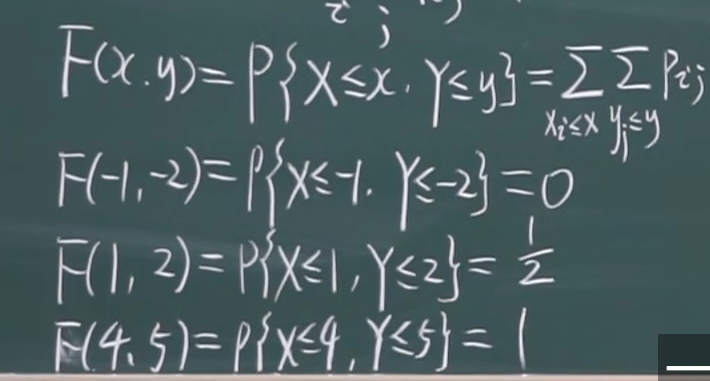 i j
F(x.y)=P{X≤x. Y≤y}=∑∑Pij
xi≤x yj≤y
F(-1,-2)=P{X≤-1. Y≤-2}=0
F(1,2)=P{X≤1,Y≤2}=1/2
F(4.5)=P{X≤4,Y≤5}=1